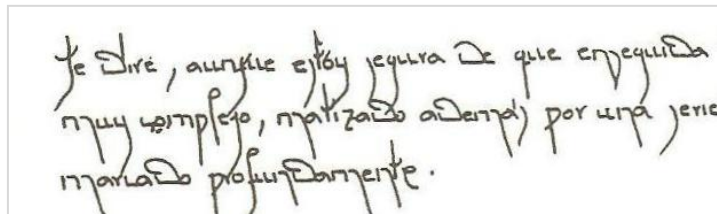 te diré, aunque estóy segura de que enseguida
muy complejo, matizado además por una serie
mariado profundamente.